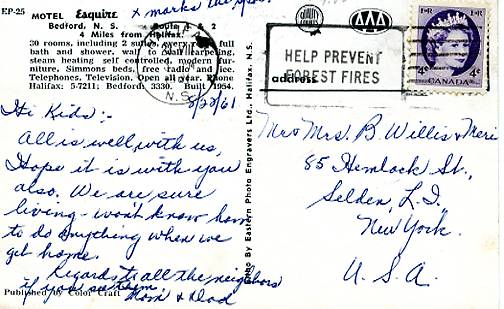 x marks the
EP-25
MOTEL Esquire
Bedford, N. S. Route 1 & 2
4 Miles from Halifax.
30 rooms, including 2 suites, every room full
bath and shower, wall to wall carpeting,
steam heating self controlled, modern fur-
niture, Simmons beds, free radio and ice.
Telephones, Television. Open all year. Phone
Halifax: 5-7211; Bedford 3330. Built 1954.
N.S.
8/22/61
Hi Kids:-
All is well with us,
Hope it is with you
also. We are sure
living - won't know how
to do anything when we
get home.
Regards to all the neighbors
if you see them.
Mom & Dad
Published by Color Craft
Litho By Eastern Photo Engravers Ltd., Halifax, N.S.
CAA
HELP PREVENT
FOREST FIRES
address
4¢ 4¢
CANADA
Mr & Mrs. B. Willis & Meri
85 Hemlock St.,
Selden, L.I.
New York.
U.S.A.